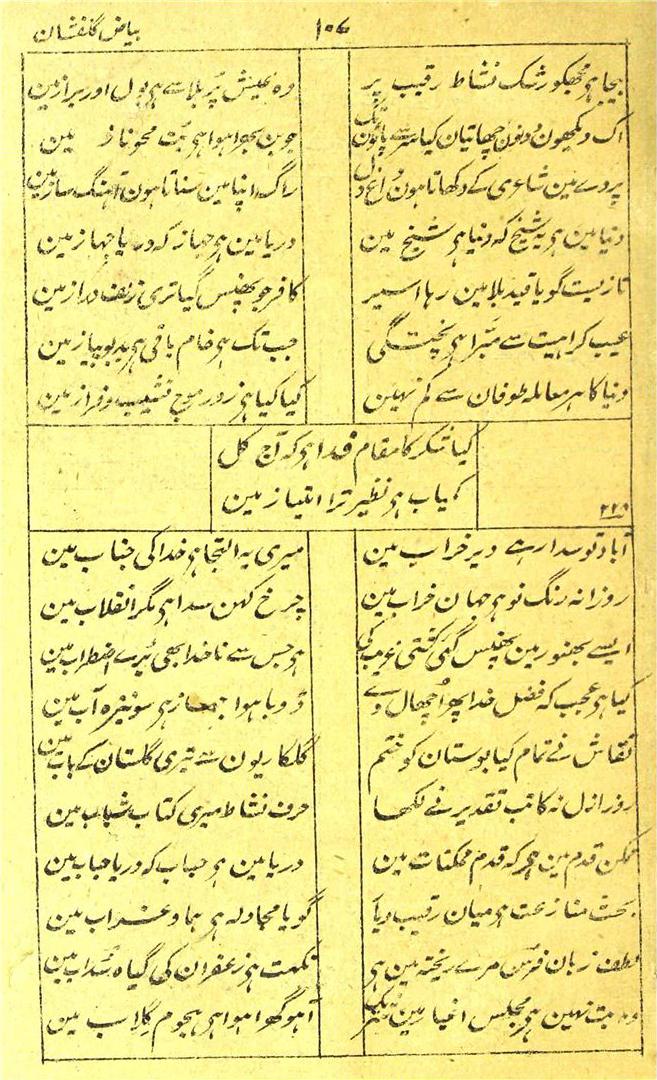 بیاض گلفشان
۱۰۶
بیجا ہو مجھکو رشک نشاط رقیب پر
وہ عیش پر بلا سے ہو بول اور براز مین
اک دیکھون دونون چھاتیان کیا سر سے پانون تک
جوبن بھرا ہوا ہی بت محو ناز مین
پردے مین شاعری کے دکھاتا ہون داغ دل
راگ اپنا مین سناتا ہون آہنگ ساز مین
دنیا مین ہی یہ شیخ کہ دنیا ہی شیخ مین
دریا مین ہی جہاز کہ دریا جہاز مین
تا زیست گویا قید بلا مین رہا اسیر
کافر جو پھنس گیا تری زلف دراز مین
عیب کراہیت سے مبرا ہی پختگی
جب تک ہی خام باقی ہی بدبو پیاز مین
دنیا کا ہر معاملہ طوفان سے کم نہین
کیا کیا ہی زور موج نشیب و فراز مین
کیا شکر کا مقام خدا ہی کہ آج کل
کمیاب ہی نظیر ترا امتیاز مین
۲۲۸
آباد تو سدا رہے دیر خراب مین
میری یہ التجا ہی خدا کی جناب مین
روزانہ رنگ نو ہی جہان خراب مین
چرخ کہن سدا ہی مگر انقلاب مین
ایسے بھنور مین پھنس گئی کشتی غریب کی
ہی جس سے ناخدا بھی پڑے اضطراب مین
کیا ہی عجب کہ فضل خدا پھر اچھال دے
ڈوبا ہوا جہاز ہی سو نیزہ آب مین
نقاش نے تمام کیا بوستان کو ختم
گلکاریون سے تیری گلستان کے باب مین
روز ازل نہ کاتب تقدیر نے لکھا
حرف نشاط میری کتاب شباب مین
ممکن قدم مین ہی کہ قدم ممکنات مین
دریا مین ہی حباب کہ دریا حباب مین
بحث منازعت ہی میان رقیب و یار
گویا مجادلہ ہی ہما و غراب مین
لطف زبان فرس مرے ریختہ مین ہی
نکہت ہی زعفران کی گیاہ سداب مین
وہ بت نہین ہی مجلس اغیار مین
آہو گھرا ہوا ہی ہجوم کلاب مین